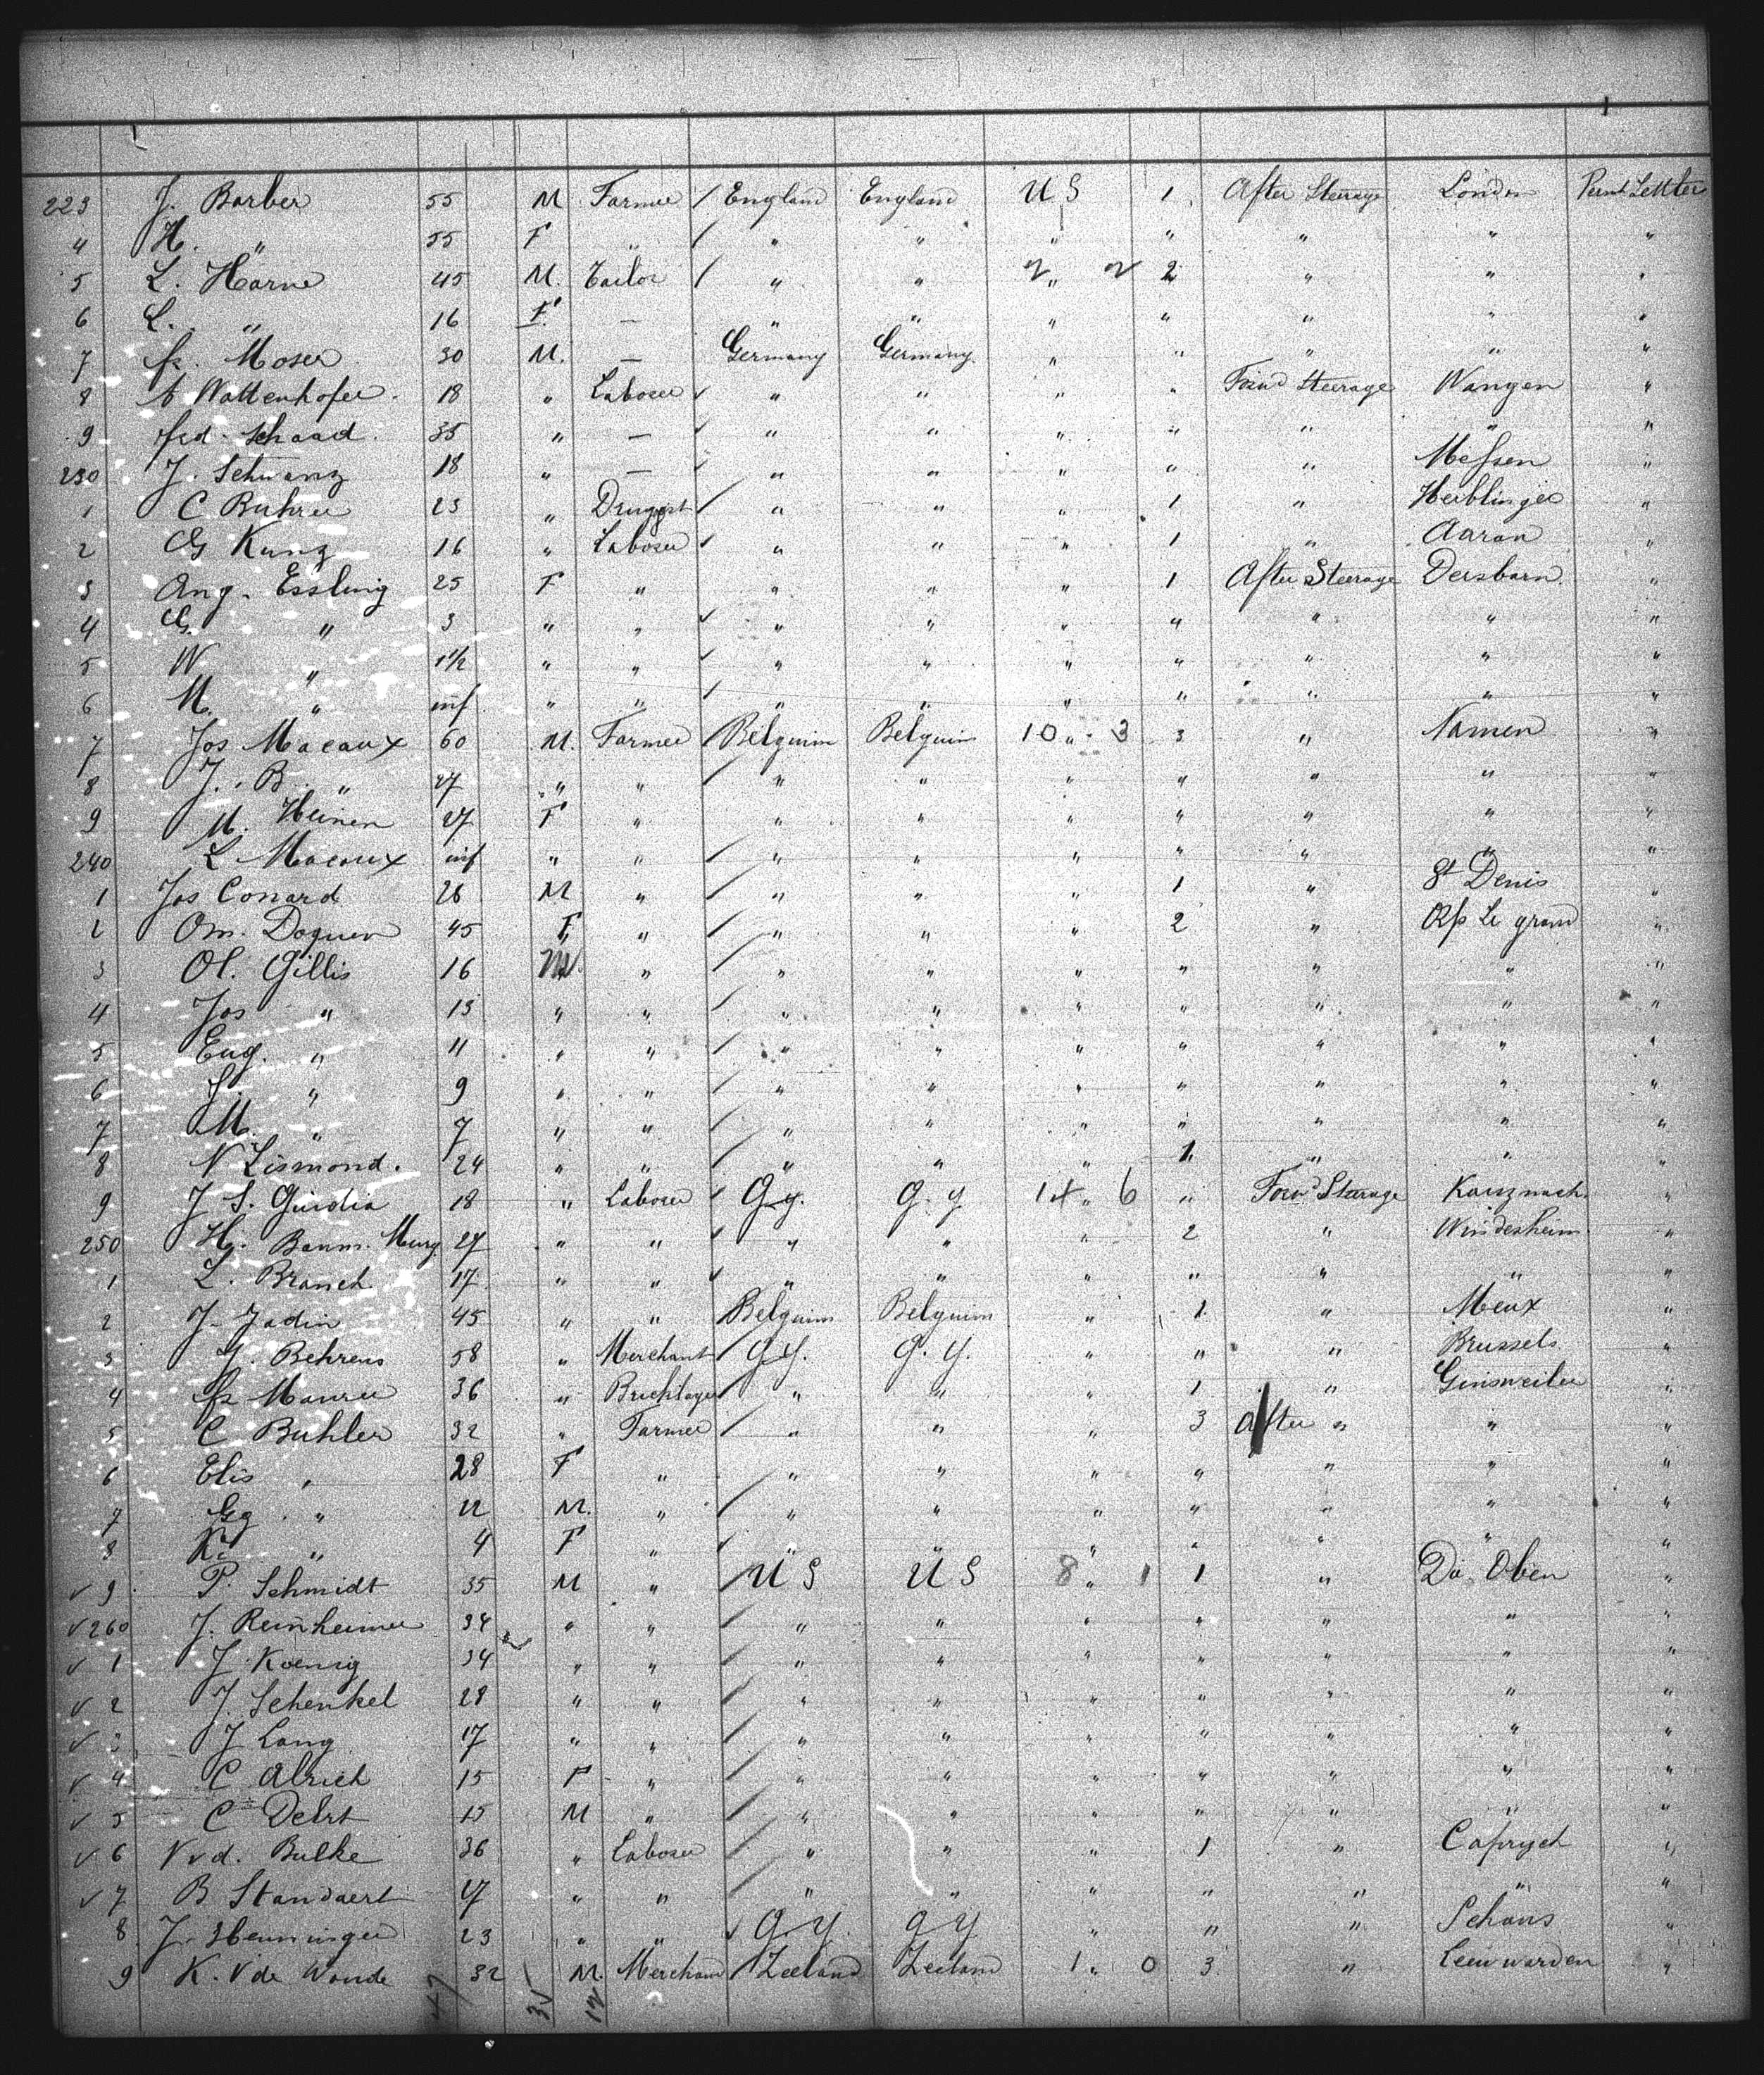 223 J. Barber 55 M Farmer / England England U S 1 After Steerage London Permt Settler
4 H. " 55 F " / " " " " " " "
5 L. Harne 45 M. Tailor / " " 2 " 2 2 " " "
6 L. " 16 F. — " " " " " " "
7 fr. Moser 30 M. — Germany Germany " " " " "
8 A Wattenhofer 18 " Laborer " " " " Forwd Steerage Wangen "
9 frd. Schaad 35 " — " " " " " " "
230 J. Schwanz 18 " — " " " " " Messen "
1 C Buhrer 23 " Druggist / " " " 1 " Herblinger "
2 G Kunz 16 " Laborer " " " 1 " Aaran "
3 Aug. Essling 25 F " " " " 1 After Steerage Dersbarn "
4 G. " 3 " " " " " " " " "
5 W " 1 1/2 " " " " " " " " "
6 M. " inf " " / " " " " " " "
7 Jos Macaux 60 M. Farmer / Belguim Belguim 10 " 3 3 " Namen "
8 J. B. " 27 " " / " " " " " " "
9 M. Heinen 27 F " " " " " " " "
240 L Macaux inf " " / " " " " " " "
1 Jos Conard 26 M " / " " " 1 " St Denis "
2 Om. Doguen 45 F " / " " " 2 " Rp Le grand "
3 Ol. Gillis 16 M " / " " " " " " "
4 Jos " 13 " " / " " " " " " "
5 Eug. " 11 " " / " " " " " " "
6 J. " 9 " " / " " " " " " "
7 M. " 7 " " / " " " " " " "
8 N Lismond. 24 " " / " " " 1 " " "
9 J S. Guidia 18 " Laborer G.y. G.y 14 " 6 " Forwd Steerage Kanznach "
250 H. Baum. Murg 27 " " " " " 2 " Windesheim "
1 L. Branch 17 " " " " " " " " "
2 J. Jadin 45 " " Belguim Belguim " 1 " Meux "
3 J. Behrens 58 " Merchant G.y. G.y. " " " Brussels "
4 fr Maurer 36 " Bricklayer / " " " 1 " Ginsweiler "
5 C Buhler 32 " Farmer / " " " 3 After " " "
6 Elis " 28 F " / " " " " " " "
7 Gg " 11 M. " / " " " " " " "
8 K. " 4 F " " " " " " " "
9 P. Schmidt 35 M " / U S U S 8 " 1 1 " Da. Oben "
260 J. Reinheimer 34 " " / " " " " " " "
1 J. Koenig 34 " " / " " " " " " "
2 J. Schenkel 28 " " / " " " " " " "
3 J Lang 17 " " / " " " " " " "
4 C Alrich 15 F " / " " " " " " "
5 C Dehrt 15 M " / " " " " " " "
6 V v d. Bulke 36 " Laborer / " " " 1 " Caprych "
7 B Standaert 27 " " / " " " " " " "
8 J. Henninger 23 " " G.Y. G Y " " " Schans "
9 K. V de Wonde 32 M. Merchant / Zeeland Zeeland 1 " 0 3 " Leeuwarden "